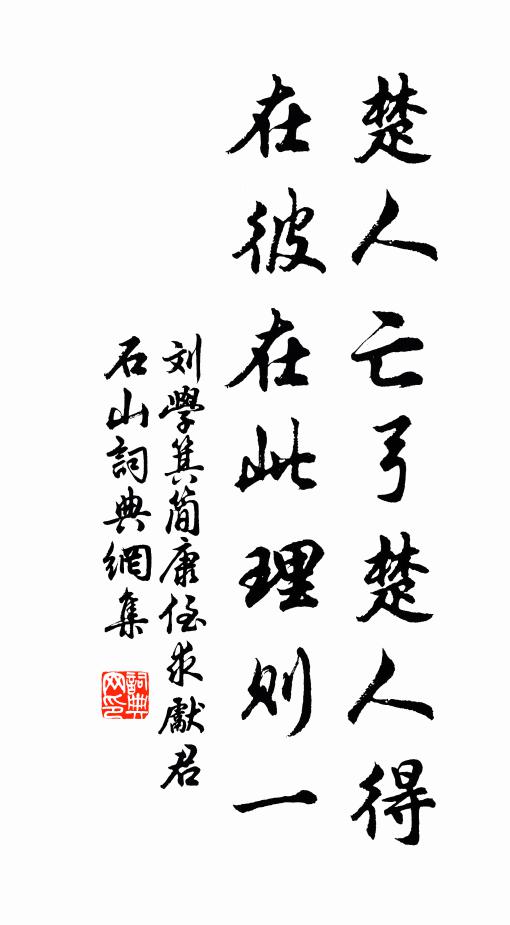 楚人亡弓楚人得
在彼在此理則一
刘學箕简康侄求獻君
石山詞典網集
詞典網印